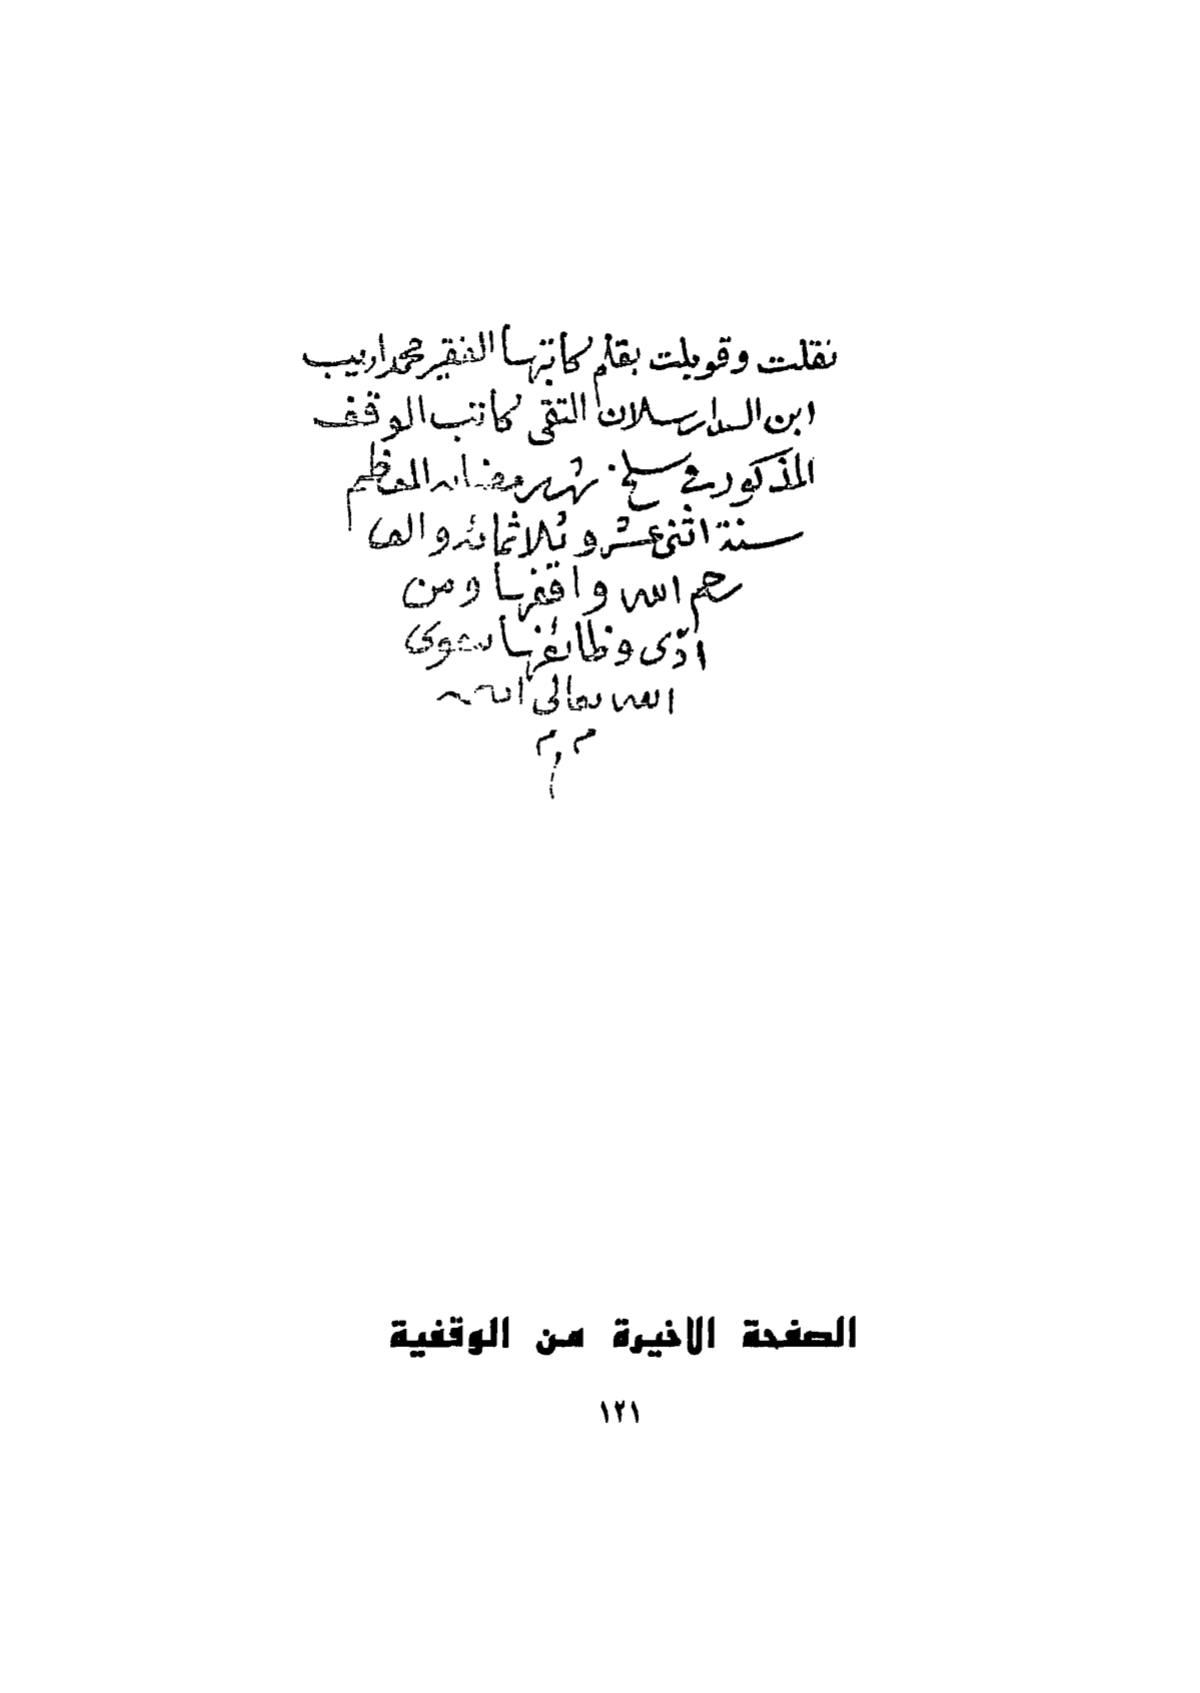 نقلت وقوبلت بقلم كاتبها الفقير محمد اديب
ابن السيد ارسلان التقى كاتب الوقف
المذكور فى سلخ شهر رمضان المعظم
سنة اثنى عشر وثلاثمائة والف
رحم الله واقفها ومن
ادّى وظائفها بتقوى
الله تعالى
م م
الصفحة الاخيرة من الوقفية
١٢١